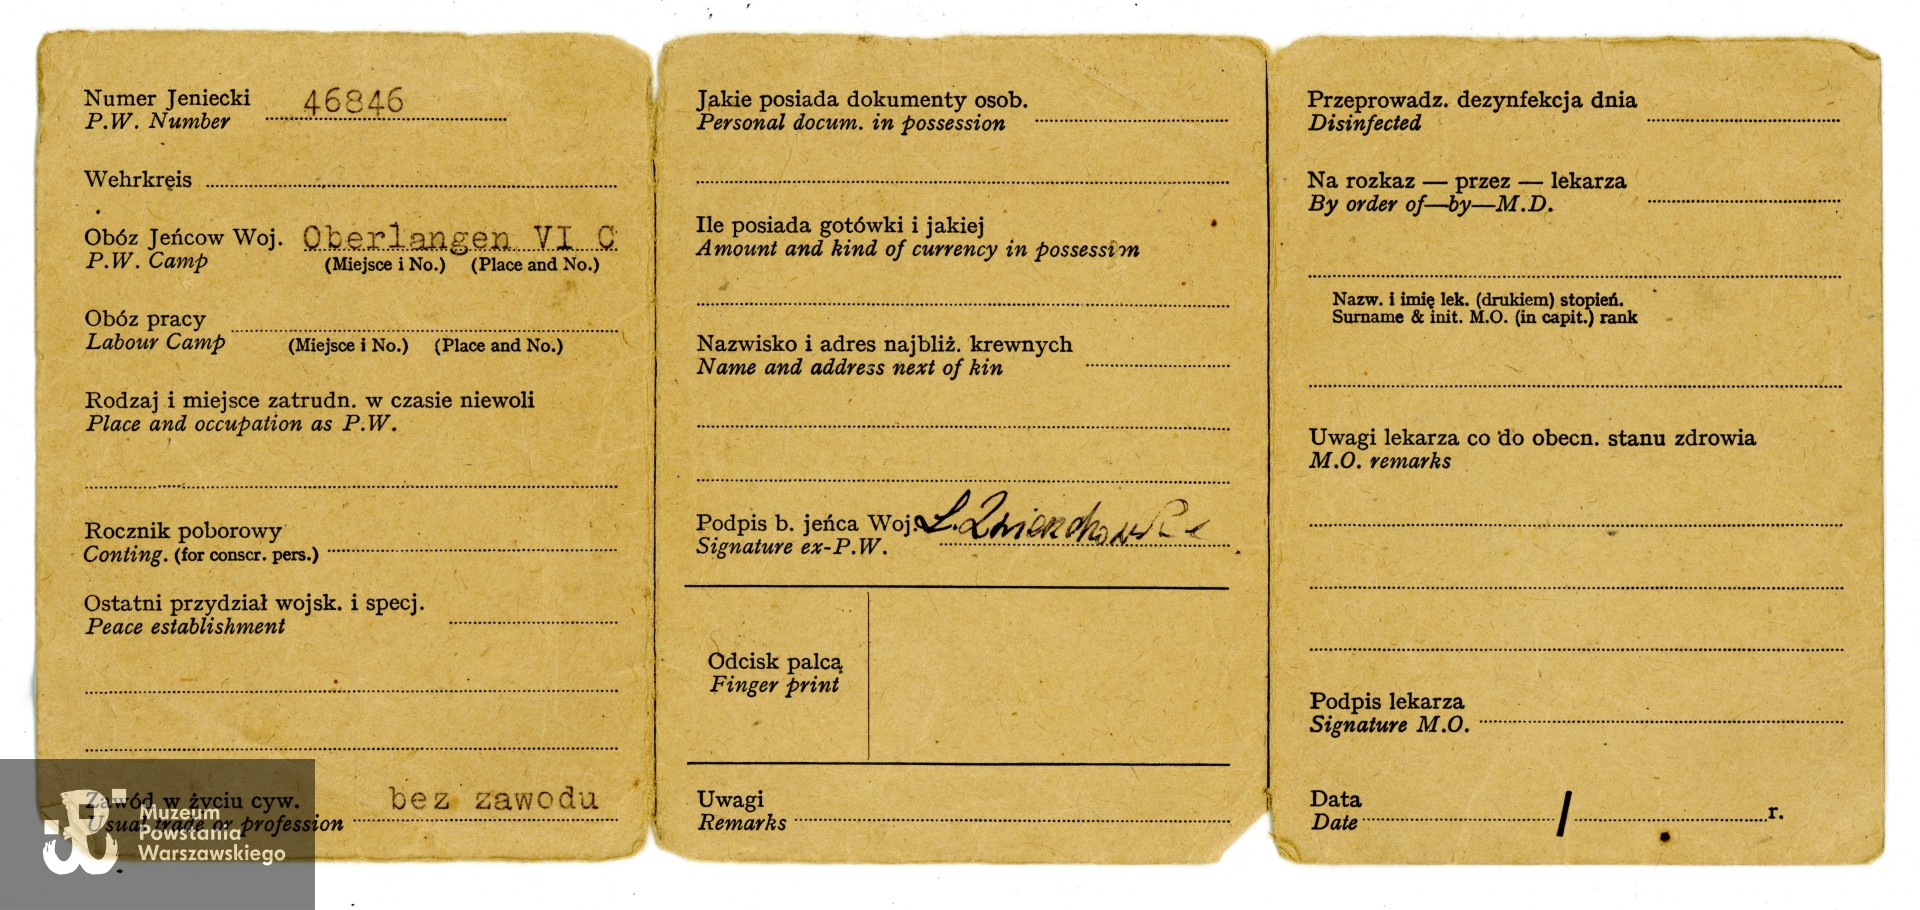 Numer Jeniecki 46846
P.W. Number
Wehrkręis
Obóz Jeńcow Woj. Oberlangen VI C
P.W. Camp (Miejsce i No.) (Place and No.)
Obóz pracy
Labour Camp (Miejsce i No.) (Place and No.)
Rodzaj i miejsce zatrudn. w czasie niewoli
Place and occupation as P.W.
Rocznik poborowy
Conting. (for conscr. pers.)
Ostatni przydział wojsk. i specj.
Peace establishment
Zawód w życiu cyw. bez zawodu
Usual trade or profession
Jakie posiada dokumenty osob.
Personal docum. in possession
Ile posiada gotówki i jakiej
Amount and kind of currency in possession
Nazwisko i adres najbliż. krewnych
Name and address next of kin
Podpis b. jeńca Woj. L.
Signature ex-P.W.
Odcisk palcą
Finger print
Uwagi
Remarks
Przeprowadz. dezynfekcja dnia
Disinfected
Na rozkaz — przez — lekarza
By order of—by—M.D.
Nazw. i imię lek. (drukiem) stopień.
Surname & init. M.O. (in capit.) rank
Uwagi lekarza co do obecn. stanu zdrowia
M.O. remarks
Podpis lekarza
Signature M.O.
Data
Date / r.
Muzeum
Powstania
Warszawskiego